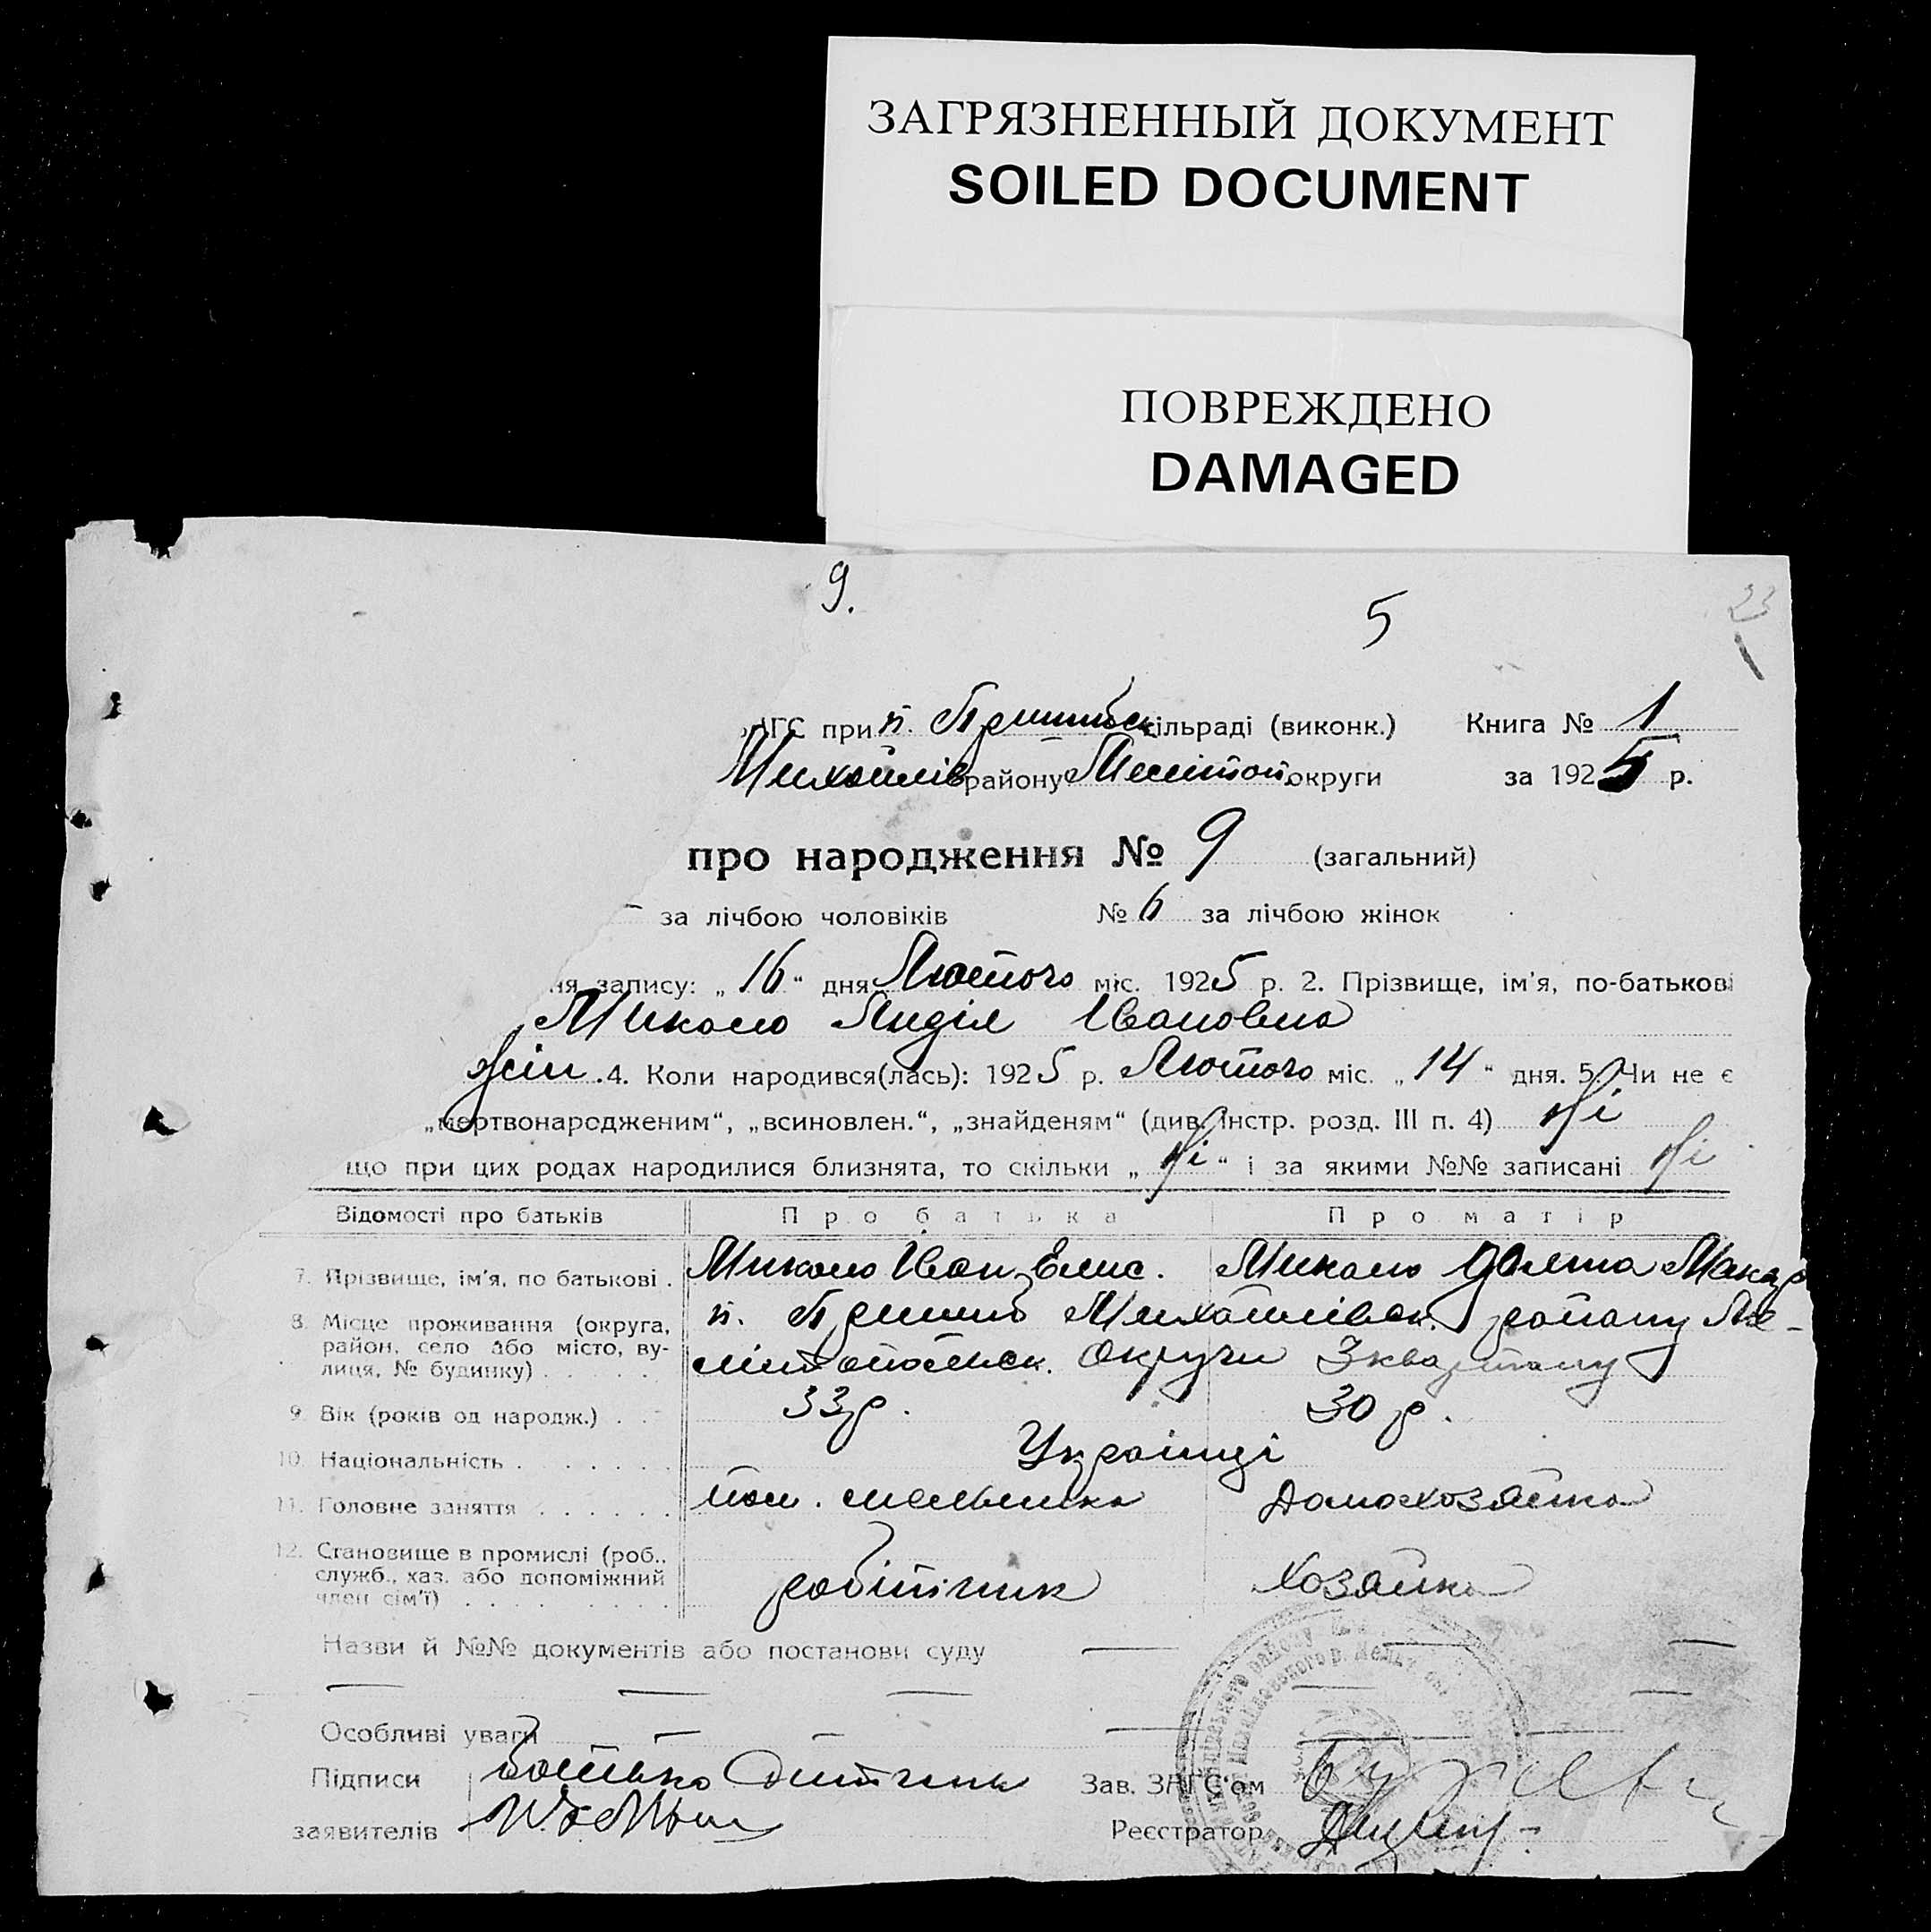 ЗАГРЯЗНЕННЫЙ ДОКУМЕНТ
SOILED DOCUMENT
ПОВРЕЖДЕНО
DAMAGED
9.
5
23
АГС при п. Пришибск ільраді (виконк.) Книга № 1
Михайлів району Меліто округи за 1925 р.
про народження № 9 (загальний)
за лічбою чоловіків № 6 за лічбою жінок
ня запису: „16“ дня Лютого міс. 1925 р. 2. Прізвище, ім'я, по-батькові
Ивановна
жін. 4. Коли народився(лась): 1925 р. Лютого міс. „14“ дня. 5. Чи не є
„мертвонародженим“, „всиновлен.“, „знайденям“ (див. Інстр. розд. III п. 4) Ні
що при цих родах народилися близнята, то скільки „Ні“ і за якими №№ записані Ні
Відомості про батьків Про батька Про матір
7. Прізвище, ім'я, по батькові . Иван Елис. Макар
8. Місце проживання (округа, район, село або місто, вулиця, № будинку) п. Пришиб Михайлівск. району Ме-
літопольск. Округи 3 кварталу
9. Вік (років од народж.) 33 р. 30 р.
10. Національність Українці
11. Головне заняття пом. мельника Домохозяйка
12. Становище в промислі (роб., служб., хаз. або допоміжний член сім'ї) робітник Хозяйка
Назви й №№ документів або постанови суду
Особливі уваги
Підписи Батько Дитини Зав. ЗАГС'ом
заявителів Реєстратор